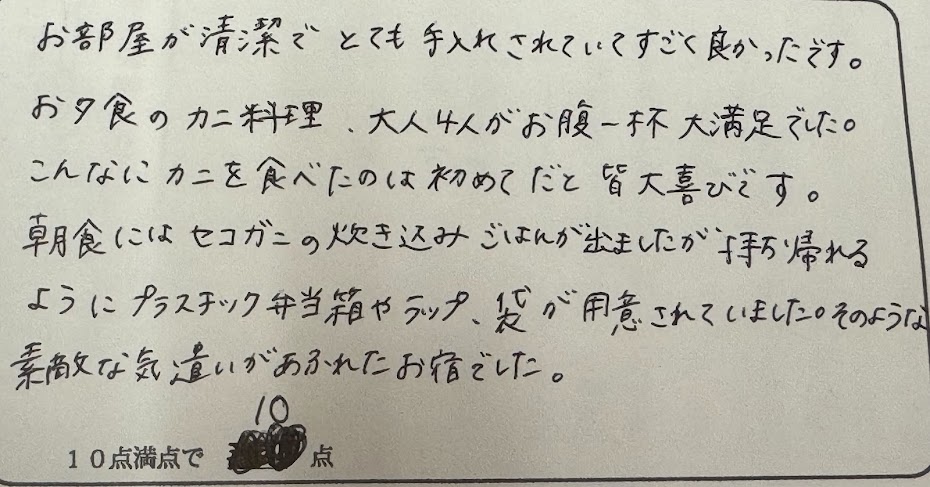 お部屋が清潔でとても手入れされていてすごく良かったです。
お夕食のカニ料理、大人4人がお腹一杯大満足でした。
こんなにカニを食べたのは初めてだと皆大喜びです。
朝食にはセコガニの炊き込みごはんが出ましたが持ち帰れる
ようにプラスチック弁当箱やラップ、袋が用意されていました。そのような
素敵な気遣いがあふれたお宿でした。
10
10点満点で 点